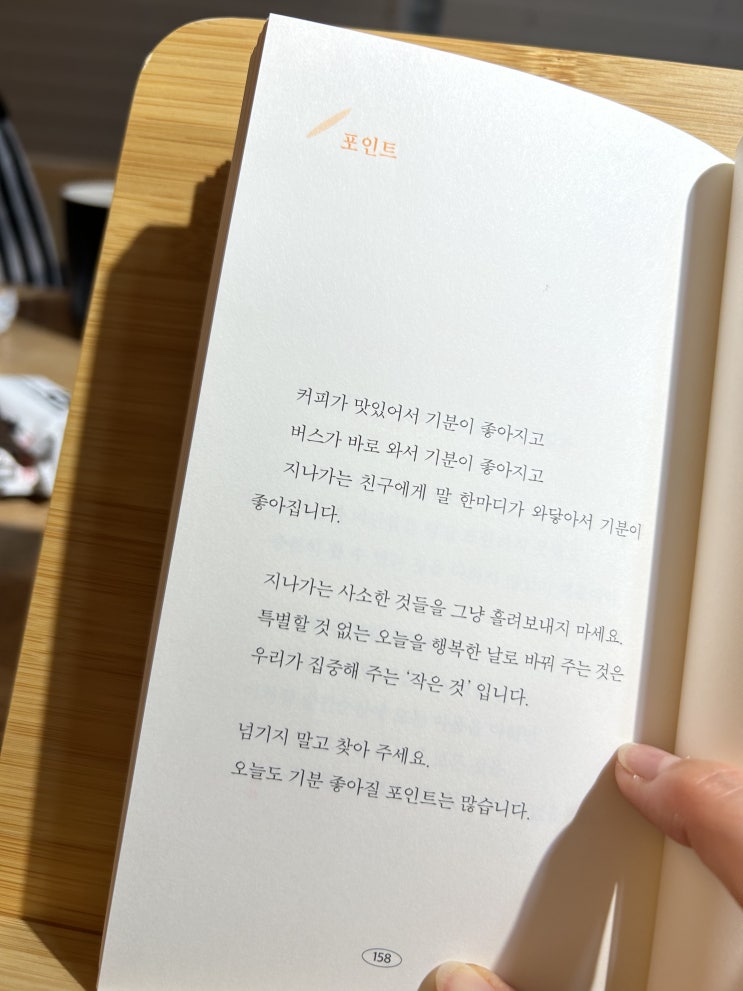 포인트
커피가 맛있어서 기분이 좋아지고
버스가 바로 와서 기분이 좋아지고
지나가는 친구에게 말 한마디가 와닿아서 기분이
좋아집니다.
지나가는 사소한 것들을 그냥 흘려보내지 마세요.
특별할 것 없는 오늘을 행복한 날로 바꿔 주는 것은
우리가 집중해 주는 ‘작은 것’ 입니다.
넘기지 말고 찾아 주세요.
오늘도 기분 좋아질 포인트는 많습니다.
158